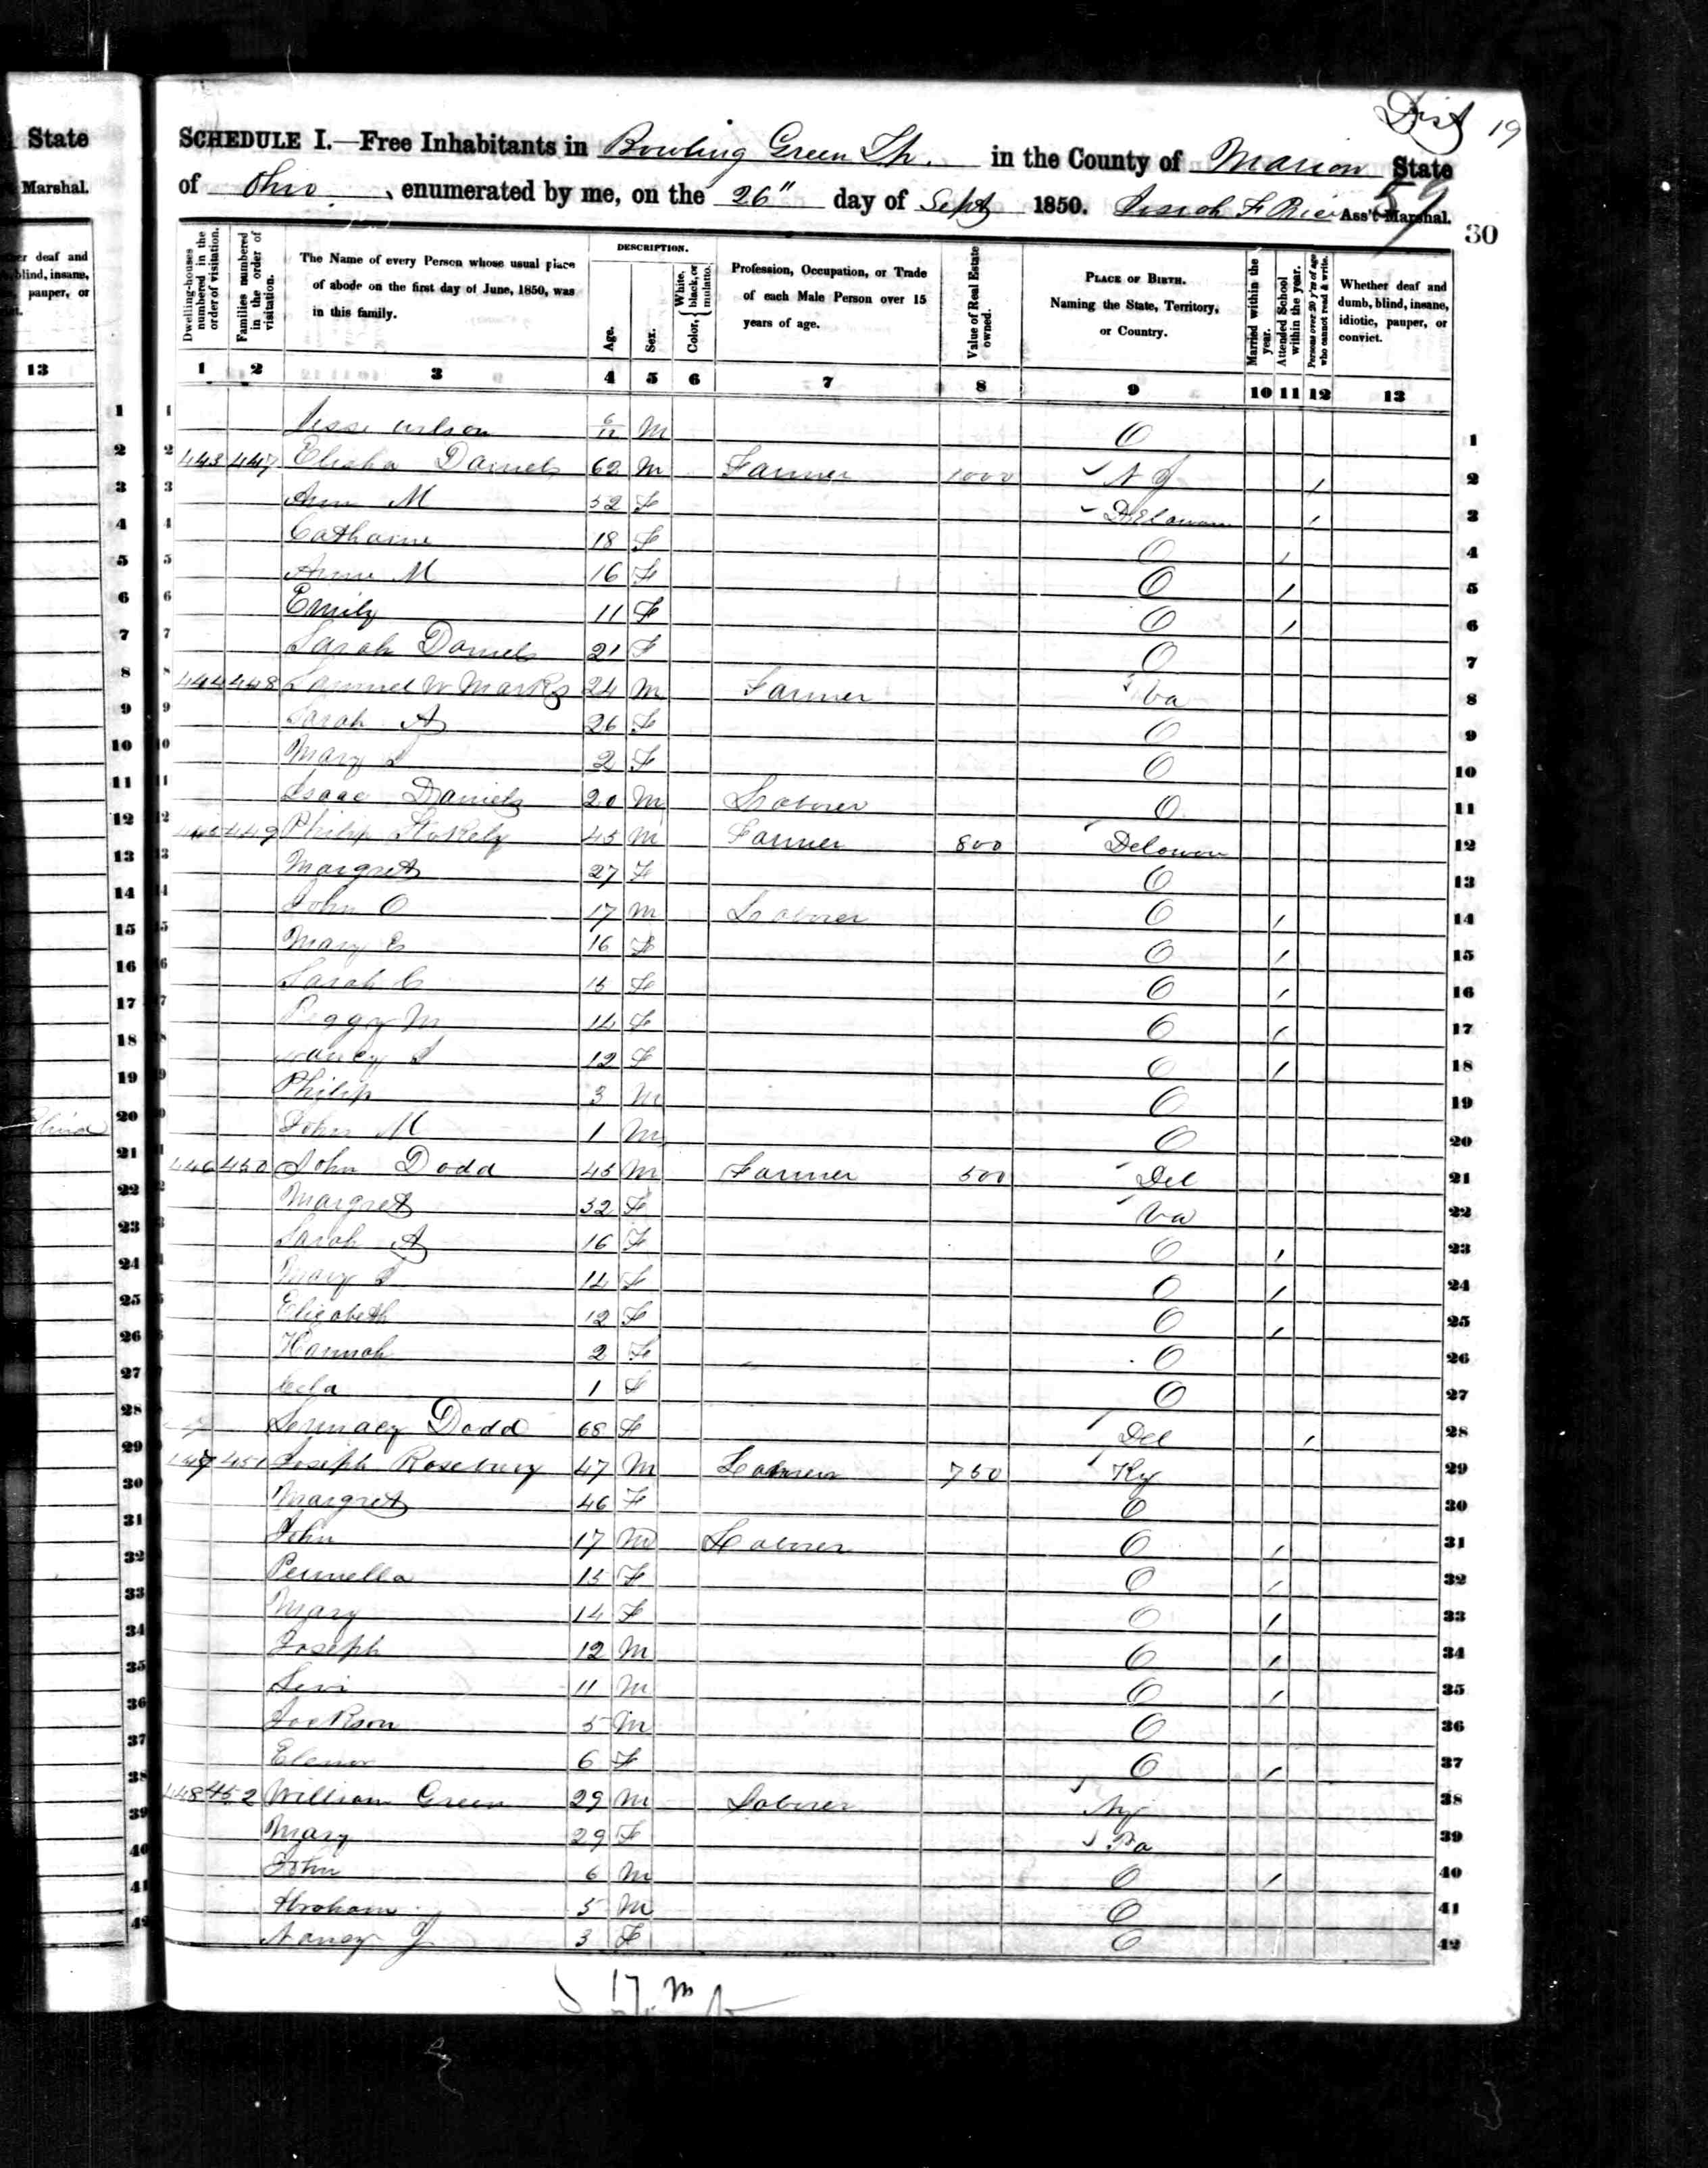 State
Marshal.
her deaf and
blind, insane,
pauper, or
13
Dist 19
SCHEDULE I.—Free Inhabitants in Bowling Green Tp. in the County of Marion State
of Ohio, enumerated by me, on the 26" day of Sept 1850. F Ass't Marshal.
30
Dwelling-houses numbered in the order of visitation.
Families numbered in the order of visitation.
The Name of every Person whose usual place of abode on the first day of June, 1850, was in this family.
DESCRIPTION.
Age.
Sex.
Color, { White, black, or mulatto.
Profession, Occupation, or Trade of each Male Person over 15 years of age.
Value of Real Estate owned.
PLACE OF BIRTH. Naming the State, Territory, or Country.
Married within the year.
Attended School within the year.
Persons over 20 y'rs of age who cannot read & write.
Whether deaf and dumb, blind, insane, idiotic, pauper, or convict.
1 2 3 4 5 6 7 8 9 10 11 12 13
1 Jesse Wilson 6/12 M O 1
2 443 447 Elisha Daniels 62 M Farmer 1000 N J / 2
3 Ann M 52 F Delaware / 3
4 Catharine 18 F O / 4
5 Anne M 16 F O / 5
6 Emily 11 F O / 6
7 Sarah Daniels 21 F O 7
8 444 448 Samuel W Marks 24 M Farmer Va 8
9 Sarah A 26 F O 9
10 Mary 2 F O 10
11 Isaac Daniels 20 M Laborer O 11
12 445 449 Philip Stokely 45 M Farmer 800 Delaware 12
13 Margret 27 F O 13
14 John O 17 M Laborer O / 14
15 Mary E 16 F O / 15
16 Sarah C 15 F O / 16
17 Peggy M 14 F O / 17
18 Nancy 12 F O / 18
19 Philip 3 M O 19
20 John M 1 M O 20
21 446 450 John Dodd 45 M Farmer 500 Del 21
22 Margret 32 F Va 22
23 Sarah A 16 F O / 23
24 Mary 14 F O / 24
25 Elizabeth 12 F O / 25
26 Hannah 2 F O 26
27 1 F O 27
28 Dodd 68 F Del / 28
29 447 451 Joseph Rosebury 47 M Farmer 750 Ky 29
30 Margret 46 F O 30
31 John 17 M Laborer O / 31
32 Permella 15 F O / 32
33 Mary 14 F O / 33
34 Joseph 12 M O / 34
35 Levi 11 M O / 35
36 Jackson 5 M O 36
37 Elenor 6 F O / 37
38 448 452 William Green 29 M Laborer 38
39 Mary 29 F Pa 39
40 John 6 M O / 40
41 Abraham 5 M O 41
42 Nancy J 3 F O 42
17 m